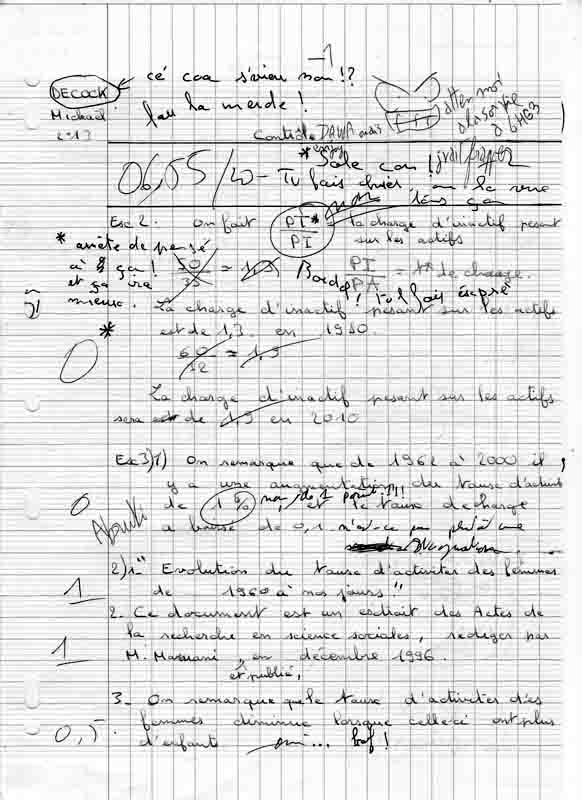 -1
DECOCK
cé coa s'vieu son !?
Michaël
fau la merde !
2°13
Contrôle
à 6H63
* Sale con !
06,55/20 - Tu fais chier, on la revu
Exc 2. On fait PI*/PI = la charge d'inactif pesant
sur les actifs
* arrête de pensé
à ça !
et ça ira
mieux.
50/35 = 1,3
PI/PA = de charge.
La charge d'inactif pesant sur les actifs
est de 1,3 en 1980.
*
0
60/32 = 1,9
La charge d'inactif pesant sur les actifs
sera de 1,9 en 2010
Exc 3) 1) On remarque que de 1962 à 2000 il
y a une augmentation du taux d'activité
0
de 1% non, de 1 point !!!! , et le taux de charge
Abruti
a baissé de 0,1. n'est-ce pas plutôt une
stagnation.
2) 1. "Evolution du taux d'activiter des femmes
1
de 1960 à nos jours."
2. Ce document est un extrait des Actes de
la recherche en science sociales, rediger par
1
M. Maruani, en décembre 1996.
et publié,
3. On remarque que le taux d'activiter des
femmes diminue lorsque celle-ci ont plus
0,5.
d'enfants oui... bof !